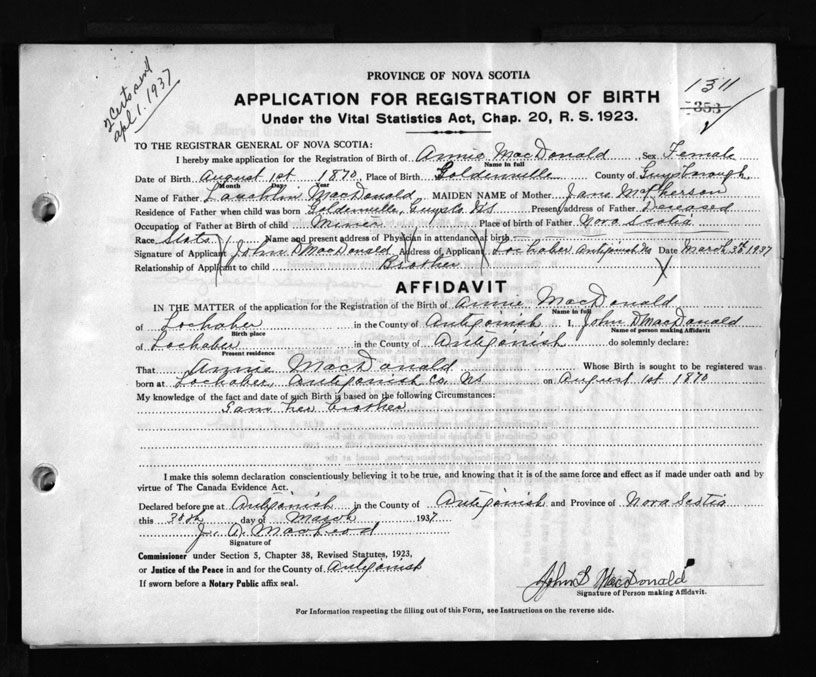 2 Certs sent
Apl 1. 1937
PROVINCE OF NOVA SCOTIA
1311
353
APPLICATION FOR REGISTRATION OF BIRTH
Under the Vital Statistics Act, Chap. 20, R. S. 1923.
TO THE REGISTRAR GENERAL OF NOVA SCOTIA:
I hereby make application for the Registration of Birth of Annie MacDonald Sex Female
Name in full
Date of Birth August 1st 1870 Place of Birth Goldenville County of Guysborough
Month Day Year
Name of Father Lauchlin MacDonald MAIDEN NAME of Mother Jane McPherson
Residence of Father when child was born Goldenville, Guysb. NS Present address of Father Deceased
Occupation of Father at Birth of child Miner Place of birth of Father Nova Scotia
Race Scots Name and present address of Physician in attendance at birth
Signature of Applicant John D MacDonald Address of Applicant Lochaber Antigonish NS Date March 30th 1937
Relationship of Applicant to child Brother
AFFIDAVIT
IN THE MATTER of the application for the Registration of the Birth of Annie MacDonald
Name in full
of Lochaber in the County of Antigonish I, John D MacDonald
Birth place Name of person making Affidavit
of Lochaber in the County of Antigonish do solemnly declare:
Present residence
That Annie MacDonald Whose Birth is sought to be registered was
born at Lochaber, Antigonish Co. NS on August 1st 1870
My knowledge of the fact and date of such Birth is based on the following Circumstances:
I am her brother
I make this solemn declaration conscientiously believing it to be true, and knowing that it is of the same force and effect as if made under oath and by
virtue of The Canada Evidence Act.
Declared before me at Antigonish in the County of Antigonish and Province of Nova Scotia
this 30th day of March 1937
J. A. MacLeod
Signature of
Commissioner under Section 5, Chapter 38, Revised Statutes, 1923,
or Justice of the Peace in and for the County of Antigonish
If sworn before a Notary Public affix seal.
John D MacDonald
Signature of Person making Affidavit.
For Information respecting the filling out of this Form, see Instructions on the reverse side.